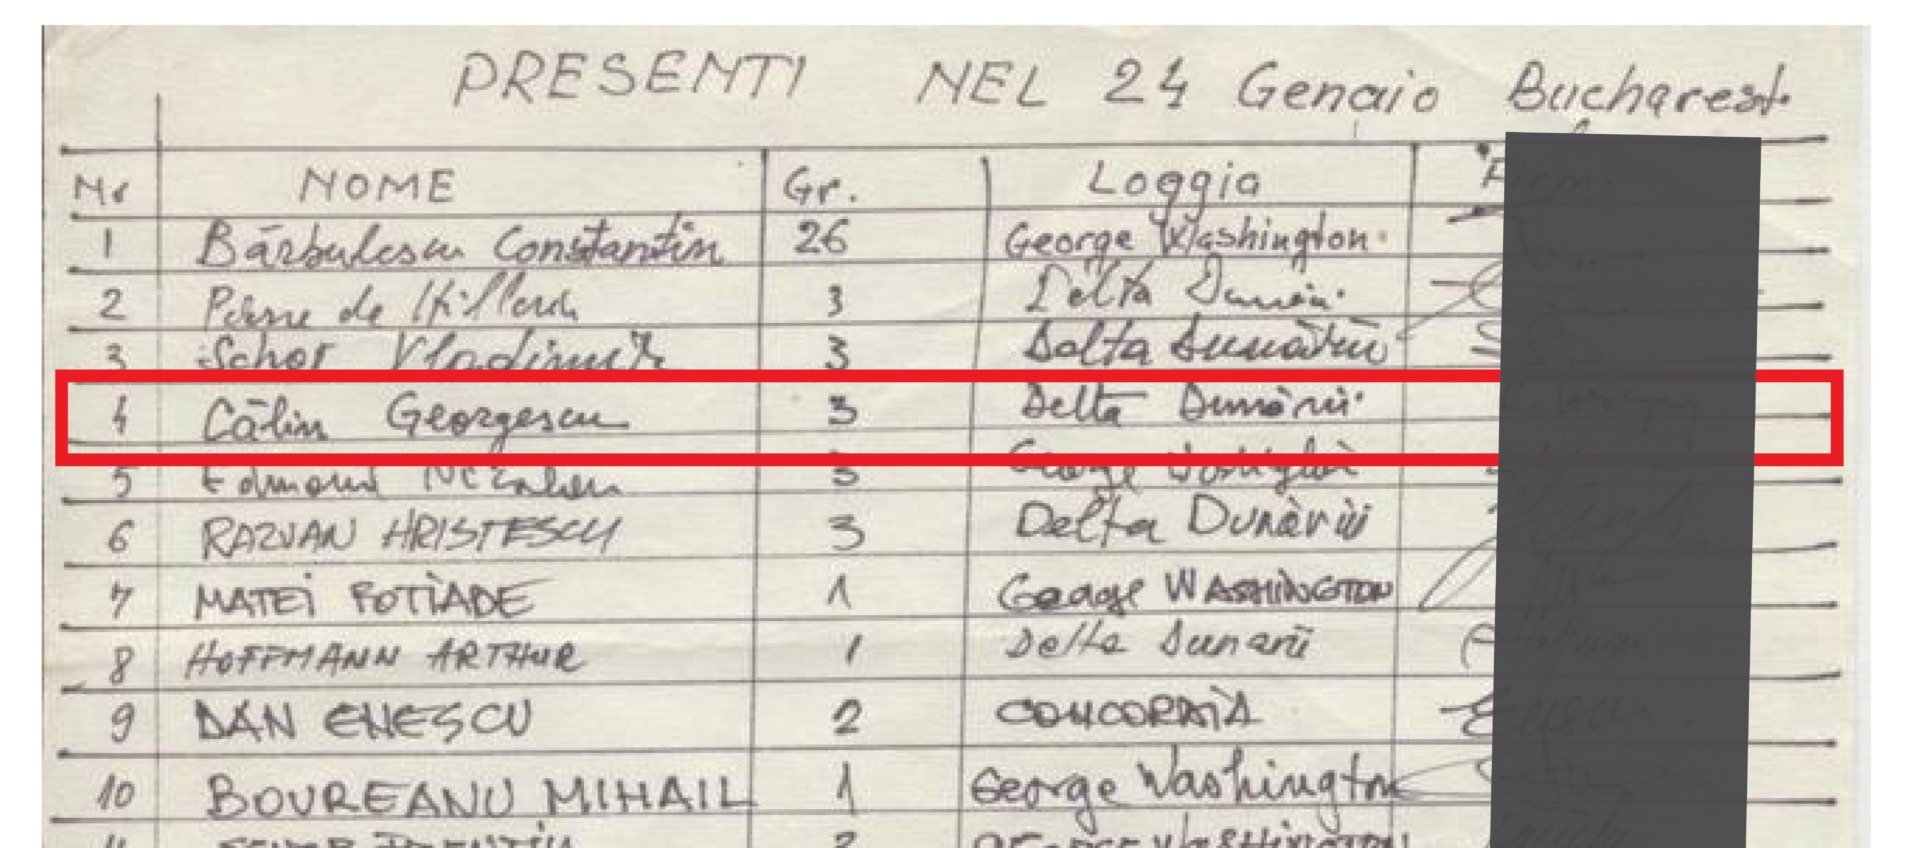 PRESENTI NEL 24 Genaio Bucharest
Nr NOME Gr. Loggia Firm.
1 Bărbulescu Constantin 26 George Washington
2 de 3 Delta Dunării
3 Schor Vladimir 3 Delta Dunării
4 Călin Georgescu 3 Delta Dunării
5 Edmond 3 George
6 RAZVAN HRISTESCU 3 Delta Dunării
7 MATEI FOTIADE 1 George WASHINGTON
8 HOFFMANN ARTHUR 1 Delta Dunarii
9 DAN ENESCU 2 CONCORDIA
10 BOUREANU MIHAIL 1 George Washington
11 2 GEORGE WASHINGTON